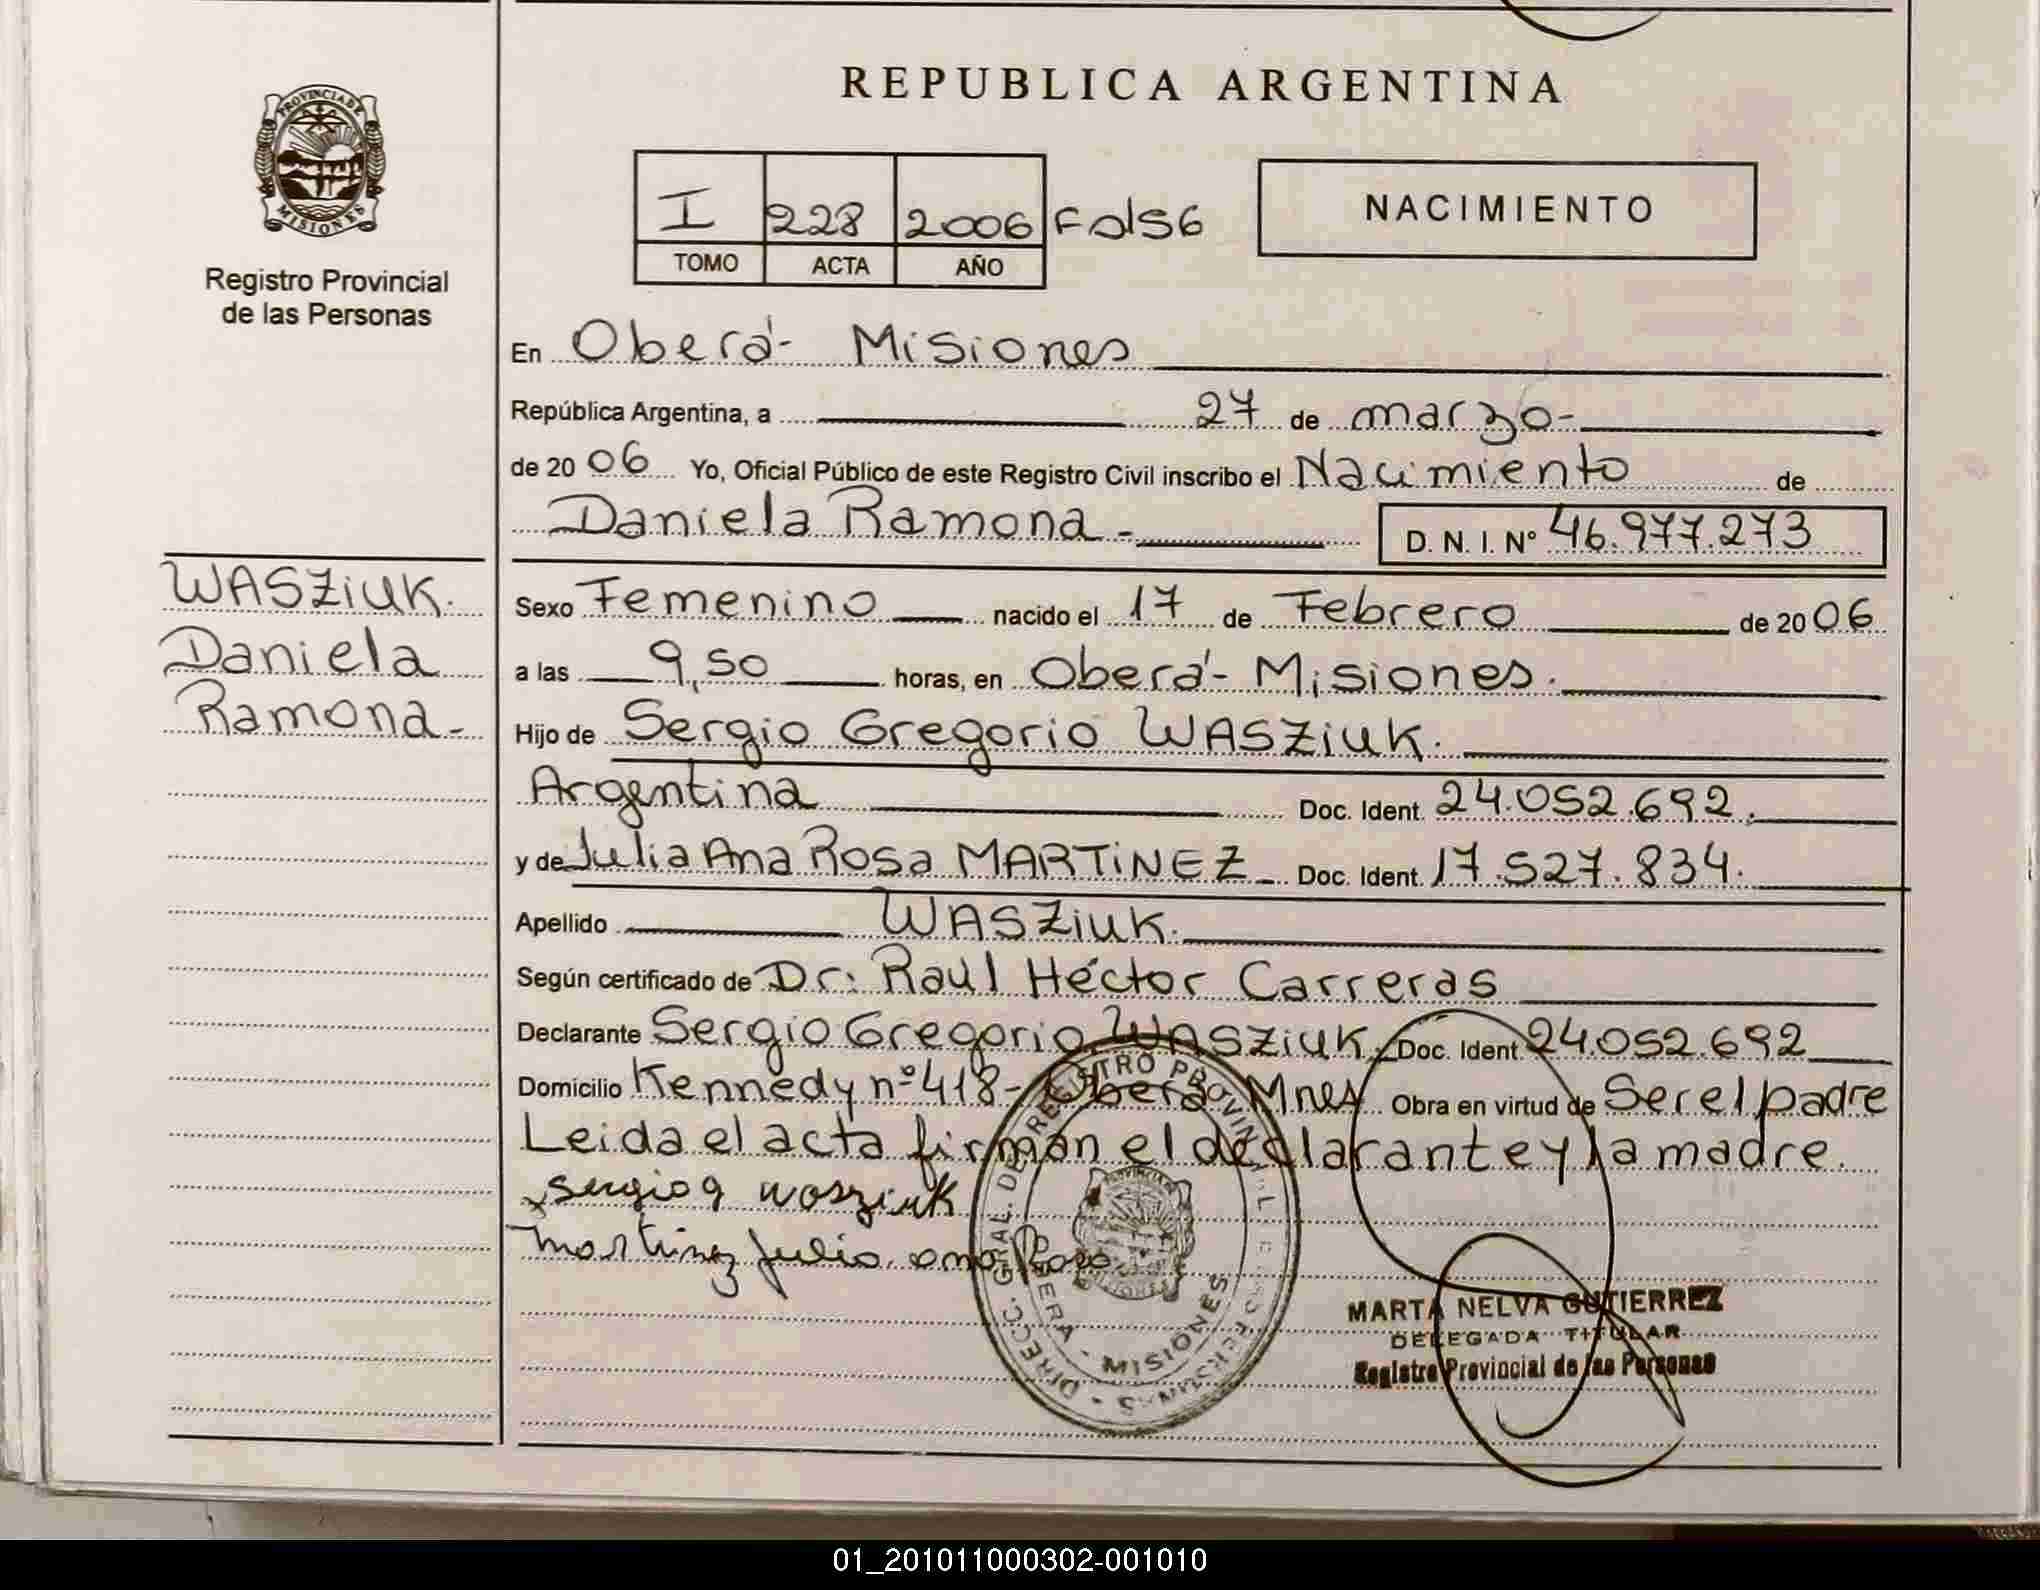 REPUBLICA ARGENTINA
PROVINCIA DE
MISIONES
Registro Provincial
de las Personas
I 228 2006 Fol 56
TOMO ACTA AÑO
NACIMIENTO
En Oberá- Misiones
República Argentina, a 27 de marzo-
de 20 06 Yo, Oficial Público de este Registro Civil inscribo el Nacimiento de
Daniela Ramona - D. N. I. Nº 46.977.273
WASZiUK.
Daniela
Ramona-
Sexo Femenino nacido el 17 de Febrero de 20 06
a las 9,50 horas, en Oberá- Misiones.
Hijo de Sergio Gregorio WASZiUK.
Argentina Doc. Ident. 24.052.692.
y de Julia Ana Rosa MARTiNEZ Doc. Ident. 17.527.834.
Apellido WASZiUK.
Según certificado de Dr: Raúl Héctor Carreras
Declarante Sergio Gregorio WASZiUK. Doc. Ident. 24.052.692
Domicilio Kennedy nº 418- Oberá Mnes Obra en virtud de Ser el padre
Leida el acta firman el declarante y la madre.
sergio g wasziuk
martinez julia ana Rosa
DIRECC. GRAL. DE REGISTRO PROVINCIAL DE LAS PERSONAS
OBERA - MISIONES
MARTA NELVA GUTIERREZ
DELEGADA TITULAR
Registro Provincial de las Personas
01_201011000302-001010